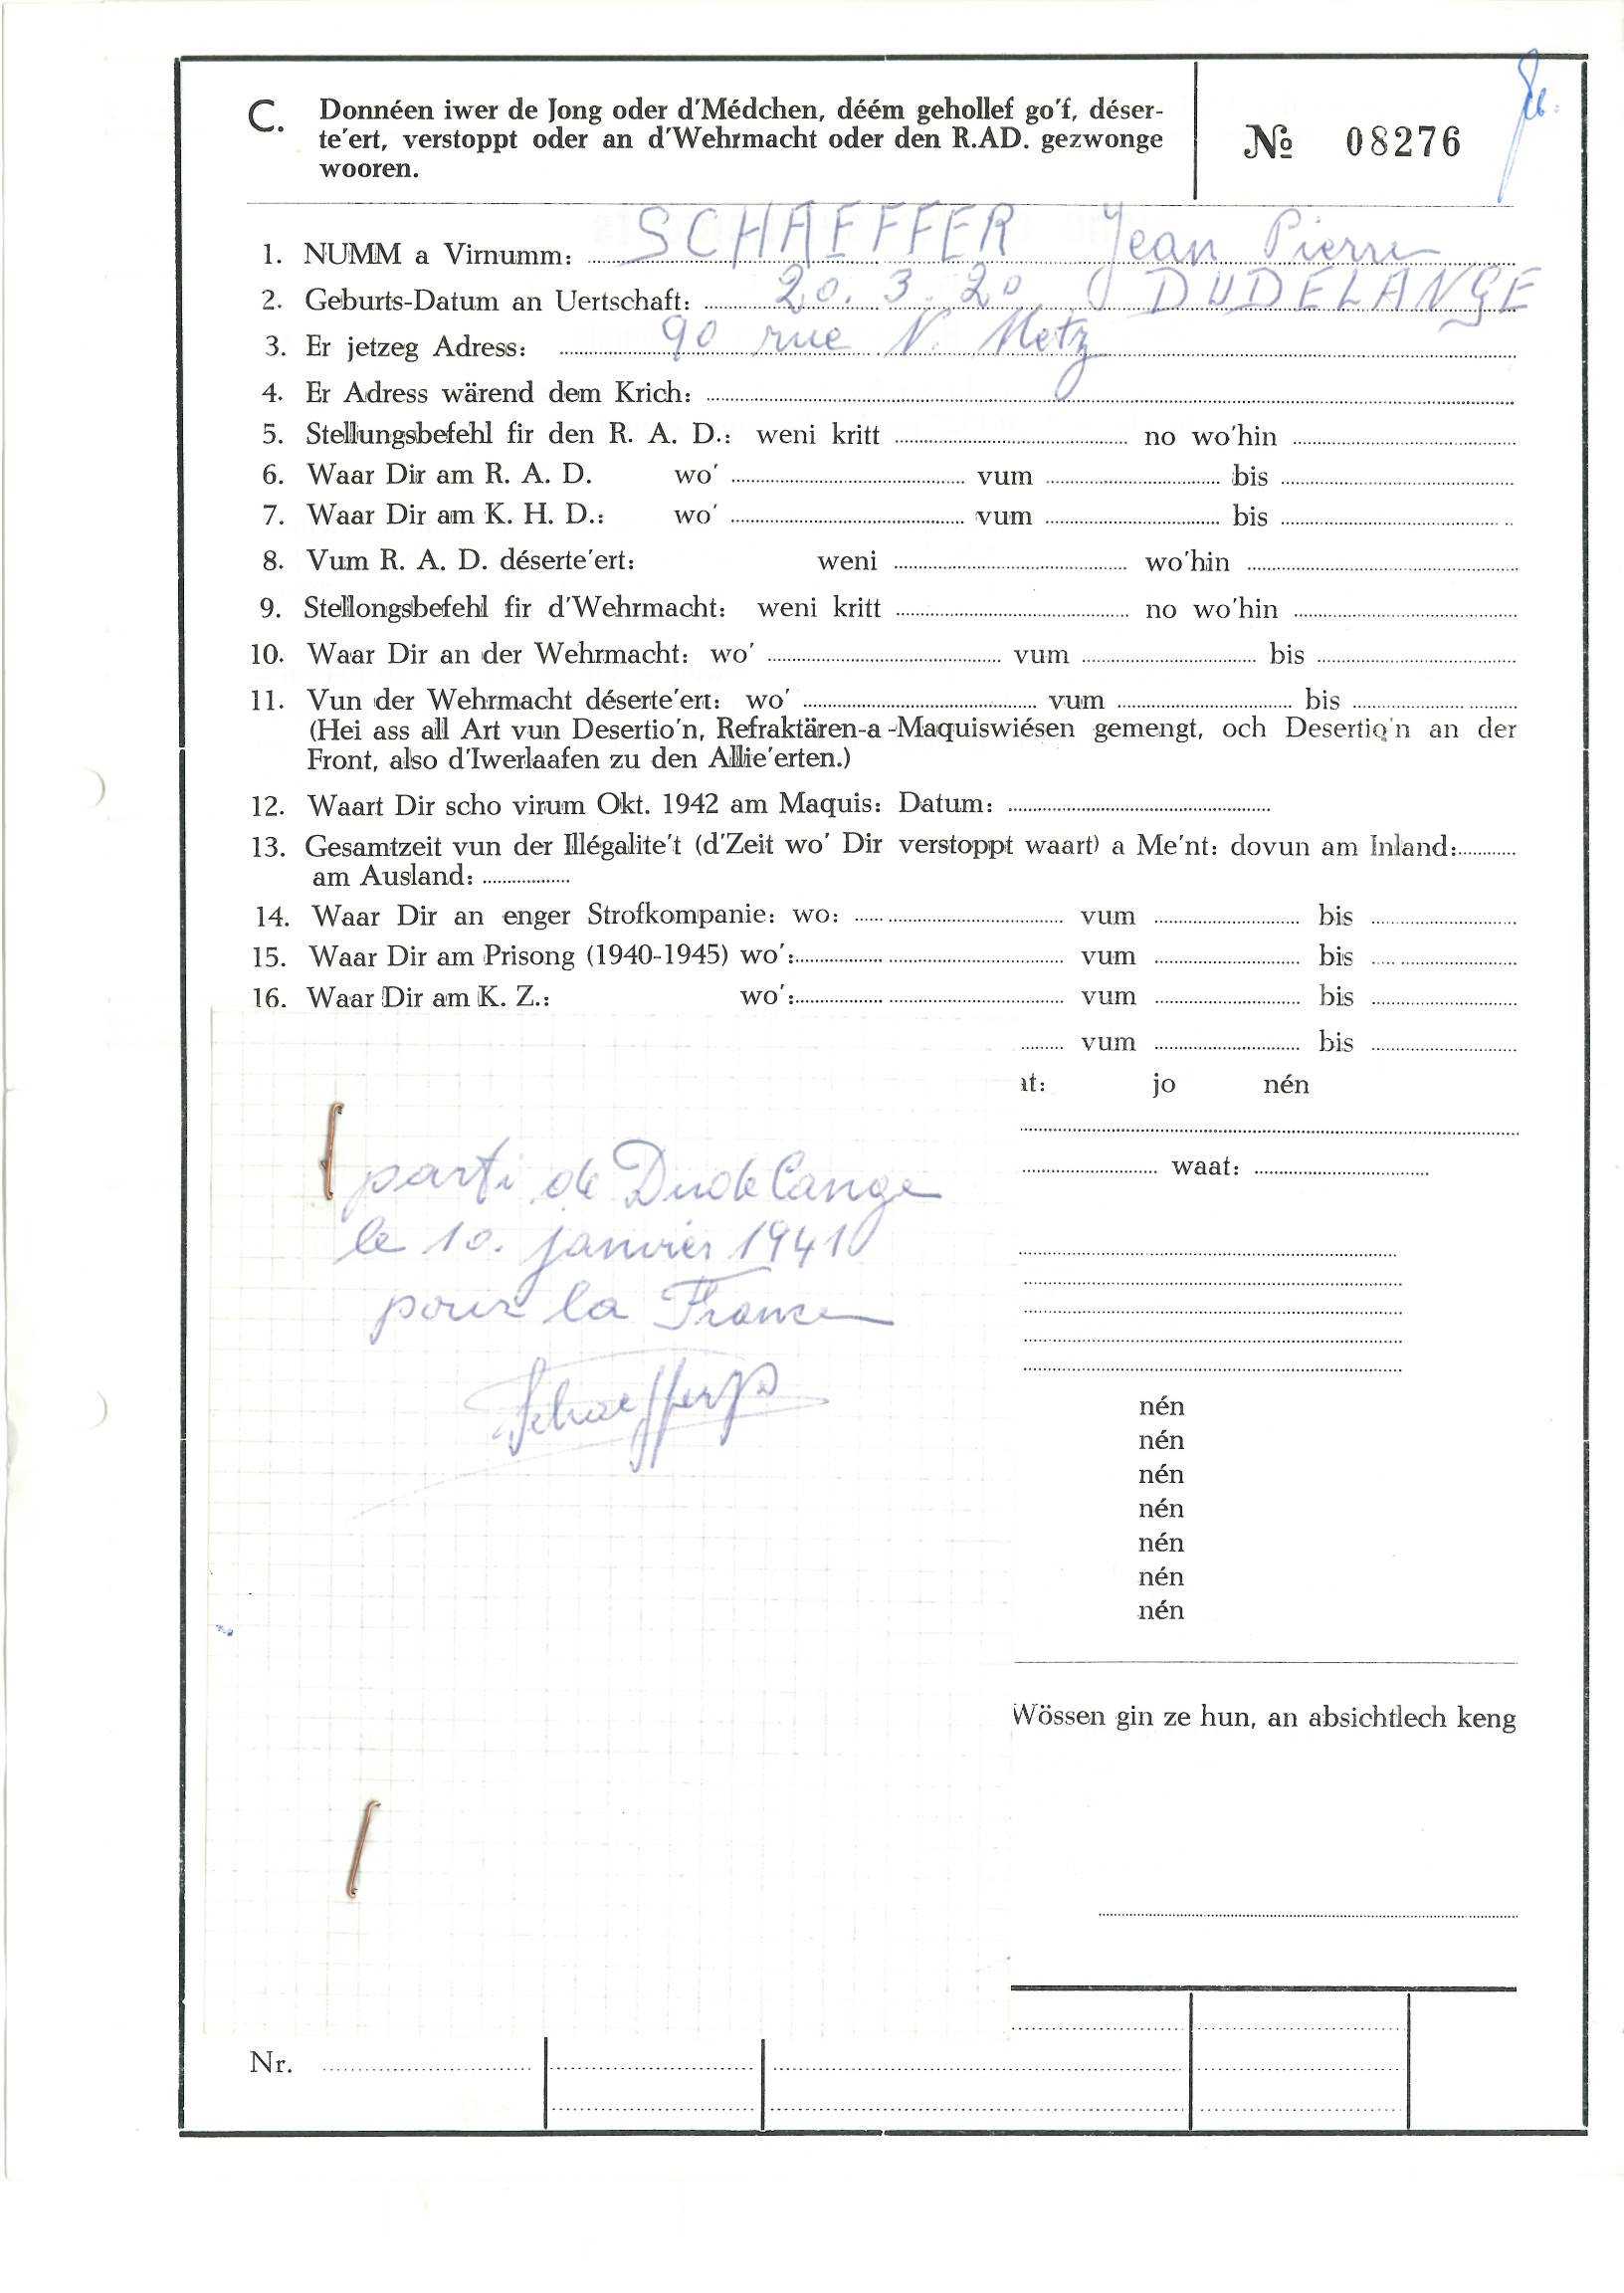 C. Donnéen iwer de Jong oder d'Médchen, déém gehollef go'f, déser-
te'ert, verstoppt oder an d'Wehrmacht oder den R.AD. gezwonge
wooren.
№ 08276
1. NUMM a Virnumm: SCHAEFFER Jean Pierre
2. Geburts-Datum an Uertschaft: 20. 3. 20 DUDELANGE
3. Er jetzeg Adress: 90 rue N. Metz
4. Er Adress wärend dem Krich:
5. Stellungsbefehl fir den R. A. D.: weni kritt no wo'hin
6. Waar Dir am R. A. D. wo' vum bis
7. Waar Dir am K. H. D.: wo' vum bis
8. Vum R. A. D. déserte'ert: weni wo'hin
9. Stellongsbefehl fir d'Wehrmacht: weni kritt no wo'hin
10. Waar Dir an der Wehrmacht: wo' vum bis
11. Vun der Wehrmacht déserte'ert: wo' vum bis
(Hei ass all Art vun Desertio'n, Refraktären-a-Maquiswiésen gemengt, och Desertio'n an der
Front, also d'Iwerlaafen zu den Allie'erten.)
12. Waart Dir scho virum Okt. 1942 am Maquis: Datum:
13. Gesamtzeit vun der Illégalite't (d'Zeit wo' Dir verstoppt waart) a Me'nt: dovun am Inland:
am Ausland:
14. Waar Dir an enger Strofkompanie: wo: vum bis
15. Waar Dir am Prisong (1940-1945) wo': vum bis
16. Waar Dir am K. Z.: wo': vum bis
vum bis
at: jo nén
waat:
parti de Dudelange
le 10. janvier 1941
pour la France
Schaefferjp
nén
nén
nén
nén
nén
nén
nén
Wössen gin ze hun, an absichtlech keng
Nr.